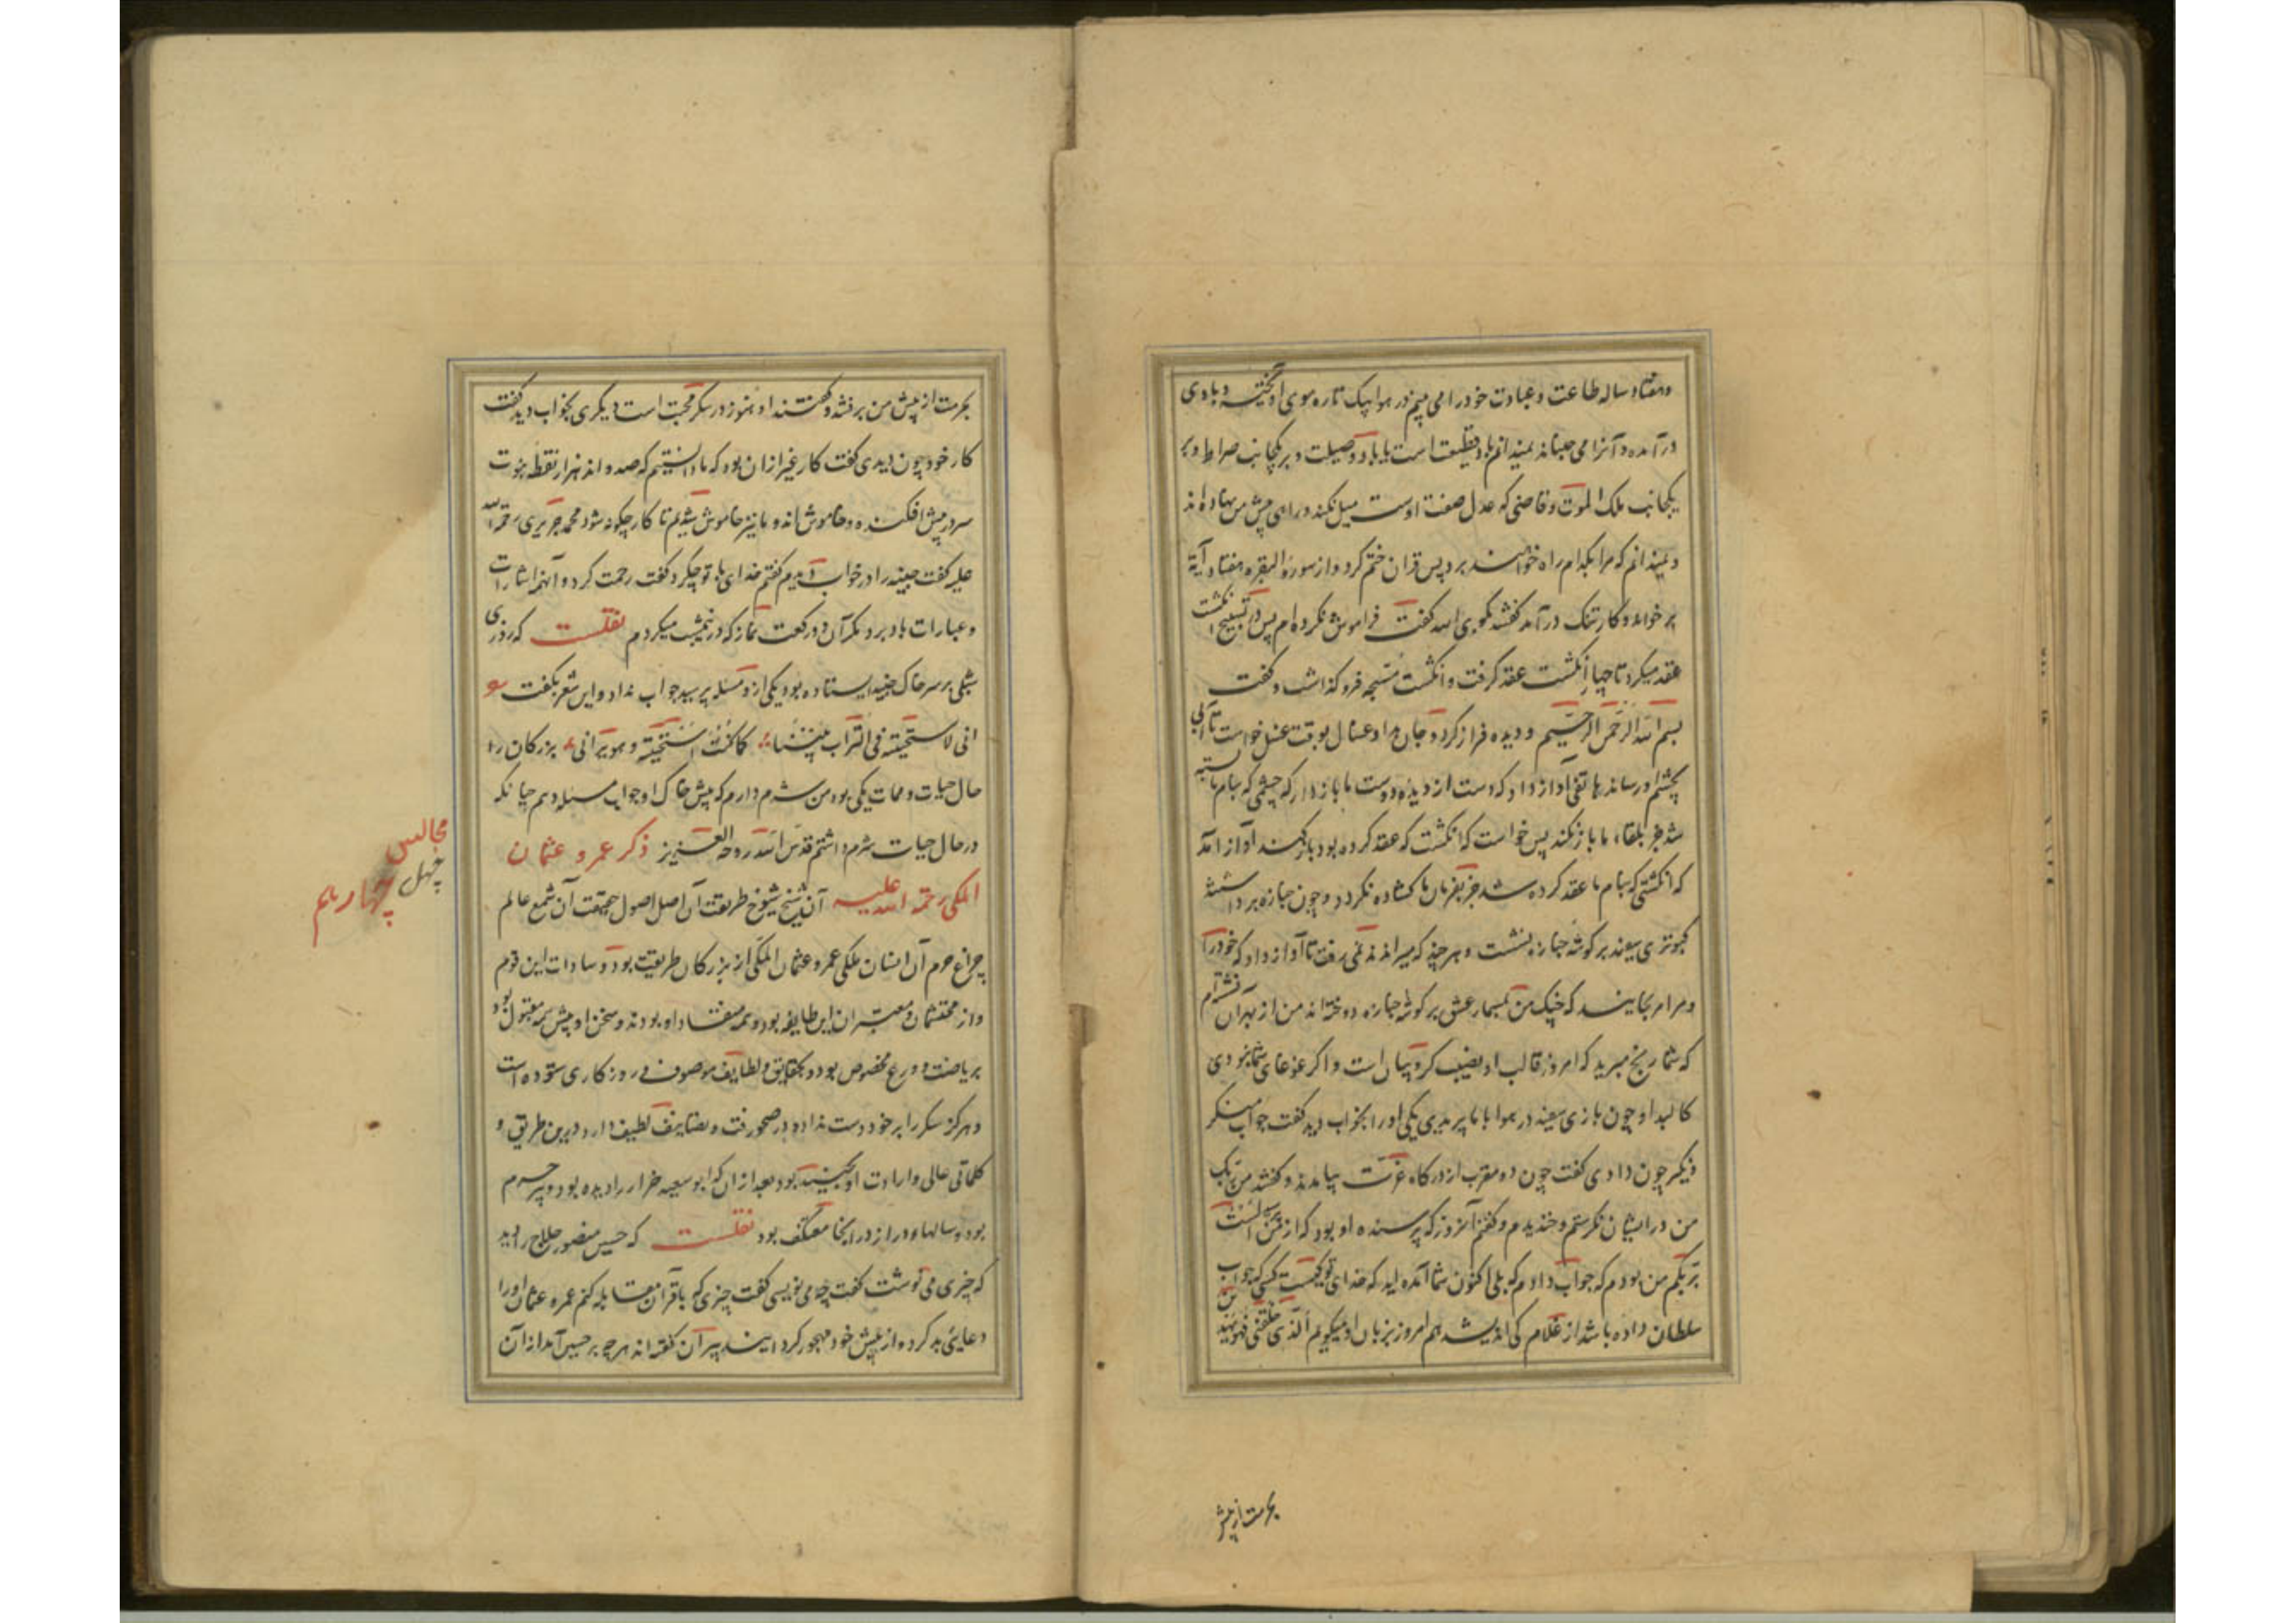 وهفتاد ساله طاعت و عبادت خود را می بینم در هوا بیک تاره موی آویخته و بادی
در آمده و آنرا می جنباند نمیدانم باد قطیعت است یا باد وصلت و بر یکجانب صراط و بر
یکجانب ملک الموت و قاضی که عدل صفت اوست میل نکند و راهی پیش من نهاده اند
و نمیدانم که مرا بکدام راه خواهند برد پس قران ختم کرد و از سورة البقره هفتاد آیة
بر خواند و کار تنک در آمد گفتند بگوی الله گفت فراموش نکرده ام پس در تسبیح انگشت
عقد میکرد تا چهار انگشت عقد گرفت و انگشت مسبحه فرو گذاشت و گفت
بسم الله الرحمن الرحیم و دیده فراز کرد و جان بداد غسال بوقت غسل خواست تا آبی
بچشم او رساند هاتفی آواز داد که دست از دیده دوست ما باز دار که چشمی که بنام ما بسته
شد جز بلقاء ما باز نکند پس خواست که انگشت که عقد کرده بود باز کند آواز آمد
که انگشتی که بنام ما عقد کرده شد جز بفرمان ما کشاده نکردد و چون جنازه برداشتند
کبوتری سفید بر کوشه جنازه نشست و هر چند که میراندند نمی رفت تا آواز داد که خود را
و مرا مرنجانید که چنک من بمسمار عشق بر کوشه جنازه دوخته اند من از بهر آن نشته ام
که شما رنج مبرید که امروز قالب او نصیب کروبیان است و اکر غوغای شما نبودی
کالبد او چون بازی سفید در هوا با ما پریدی یکی او را بخواب دید گفت جواب منکر
و نکیر چون دادی گفت چون دو مقرب از درکاه عزت بیامدند و گفتند من ربک
من در ایشان نکرستم و خندیدم و گفتم آنروز که پرسنده او بود که از من الست
بربکم من بودم که جواب دادم که بلی اکنون شما آمده اید که خدای تو کیست کسی که جواب
سلطان داده باشد از غلام کی اندیشد هم امروز بزبان او میگویم الذی خلقنی فهو یهدین
بحرمت از پیش
بحرمت از پیش من برفتند و گفتند او هنوز در سکر محبت است دیگری بخواب دید گفت
کار خود چون دیدی گفت کار غیر از ان بود که ما دانستیم که صد و اند هزار نقطه نبوت
سر در پیش افکنده و خاموش اند و ما نیز خاموش شدیم تا کار چکونه شود محمد جریری رحمة الله
علیه گفت جنید را در خواب دیدم گفتم خدای با تو چکرد گفت رحمت کرد و آنهم اشارات
و عبارات باد برد مکر آن دو رکعت نماز که در نیمشب میکردم نقلست که روزی
شبلی بر سر خاک جنید ایستاده بود یکی ازو مسئله پرسید جواب نداد و این شعر بگفت
انی لاستحییه فی التراب بیننا کما کنت استحییه و هو یرانی بزرکان را
حال حیات و ممات یکی بود من شرم دارم که پیش خاک او جواب مسئله دهم چنانکه
در حال حیات شرم داشتم قدس الله روحه العزیز ذکر عمرو عثمان
المکی رحمة الله علیه آن شیخ شیوخ طریقت آن اصل اصول حقیقت آن شمع عالم
چراغ حرم آن انسان ملکی عمرو عثمان المکی از بزرکان طریقت بود و سادات این قوم
و از محتشمان و معتبران این طایفه بود و همه منقاد او بودند و سخن او پیش همه مقبول بود
بریاضت و ورع مخصوص بود و بحقایق و لطایف موصوف و روزکاری ستوده داشت
و هرکز سکر را بر خود دست نداده و در صحو رفت و تصانیف لطیف دارد درین طریق و
کلماتی عالی و ارادت او بجنید بود بعد از ان که ابو سعید خراز را دیده بود و پیر حرم
بود و سالهاء دراز در انجا معتکف بود نقلست که حسین منصور حلاج را دید
که چیزی می نوشت گفت چه می نویسی گفت چیزی که با قرآن مقابله کنم عمرو عثمان او را
دعائی بد کرد و از پیش خود مهجور کردانید پیران گفته اند هر چه بر حسین آمد از آن
مجالس
چهل
چهارم